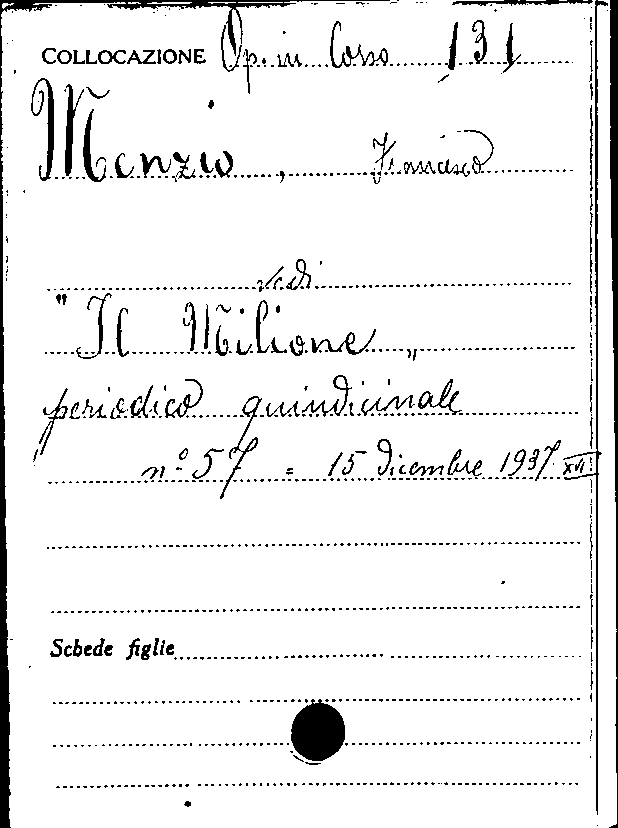 COLLOCAZIONE Op. in Corso 131
Menzio, Francesco
vedi
"Il Milione"
periodico quindicinale
n.° 57 = 15 dicembre 1937 XVI
Schede figlie